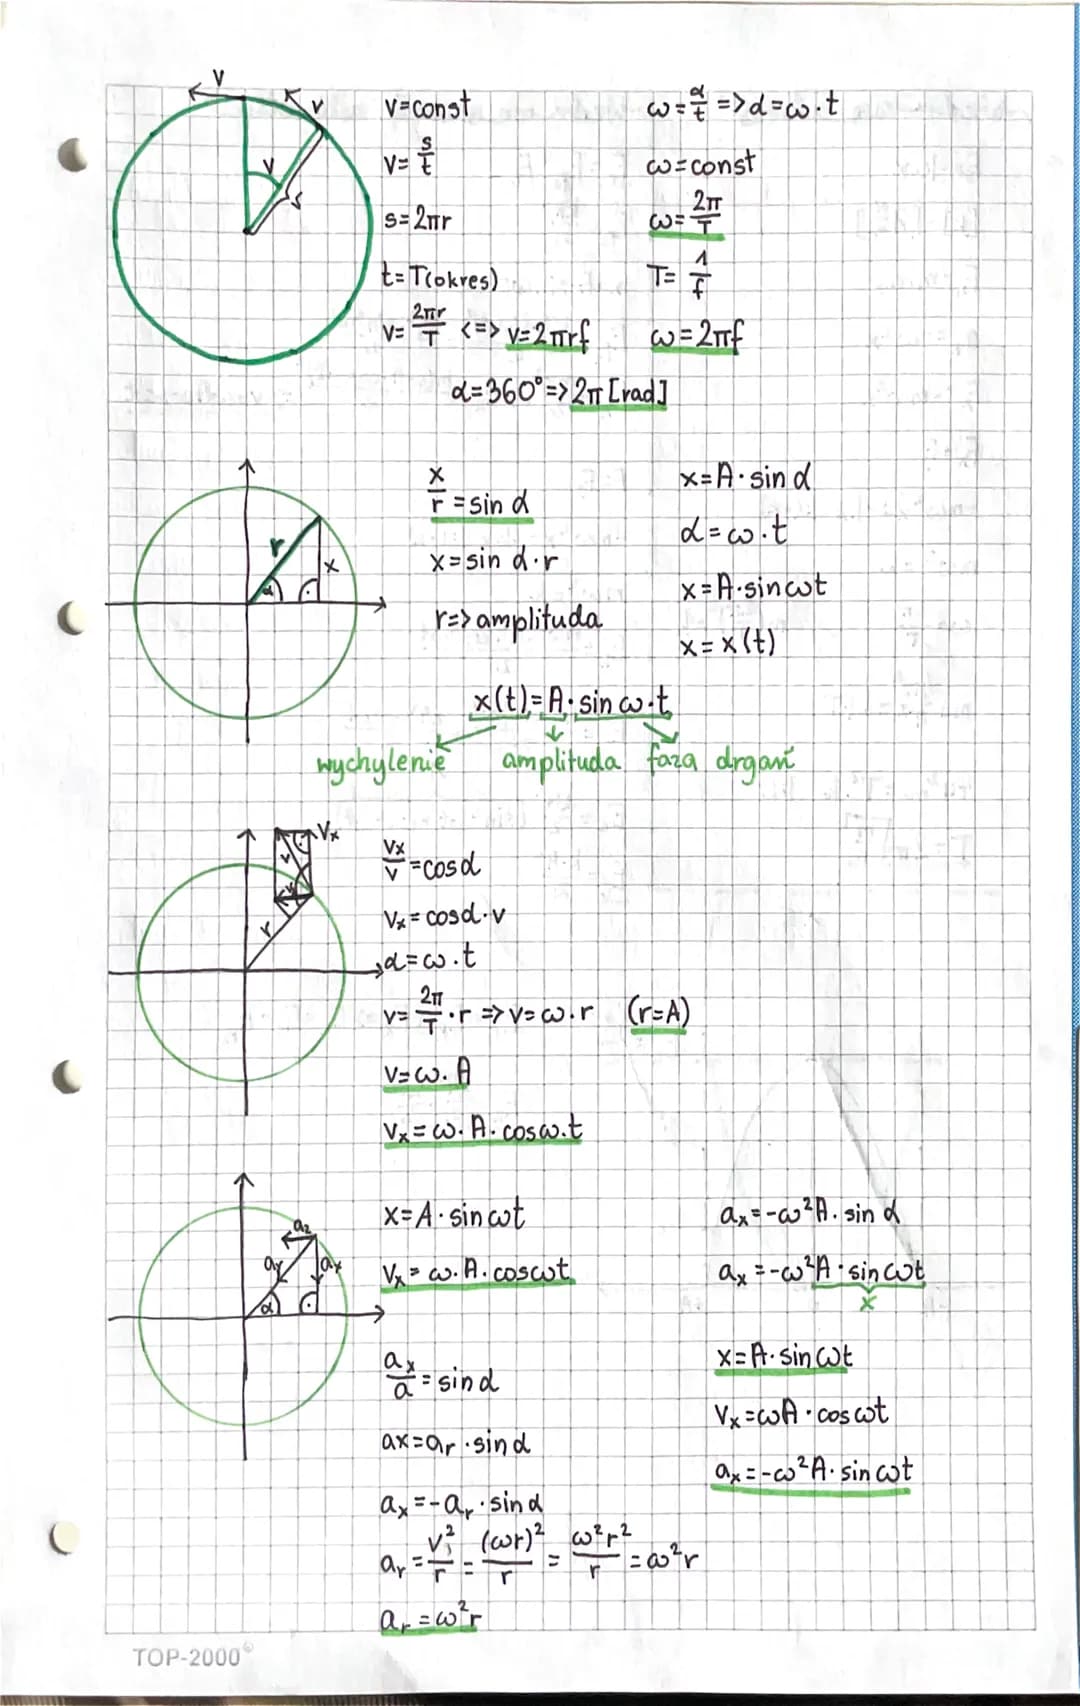 V
V
V
S
v=const
v=s/t
s=2πr
t=T(okres)
v=2πr/T <=> v=2πrf
ω=α/t =>α=ω·t
ω=const
ω=2π/T
T=1/f
ω=2πf
α=360°=>2π[rad]
r
x
α
x/r=sin α
x=sin α·r
r=>amplituda
x=A·sin α
α=ω·t
x=A·sinωt
x=x(t)
x(t)=A·sin ω·t
wychylenie amplituda faza drgań
Vx
V
r
Vx/V=cosα
Vx=cosα·v
α=ω·t
v=2π/T·r =>v=ω·r (r=A)
v=ω·A
Vx=ω·A·cosω·t
az
ar
ax
α
x=A·sinωt
Vx=ω·A·cosωt
ax/a=sinα
ax=ar·sinα
ax=-ar·sinα
ar=v²/r=(ωr)²/r=ω²r²/r=ω²r
ar=ω²r
ax=-ω²A·sin α
ax=-ω²A·sinωt
x
x=A·sinωt
Vx=ωA·cosωt
ax=-ω²A·sinωt
TOP-2000©